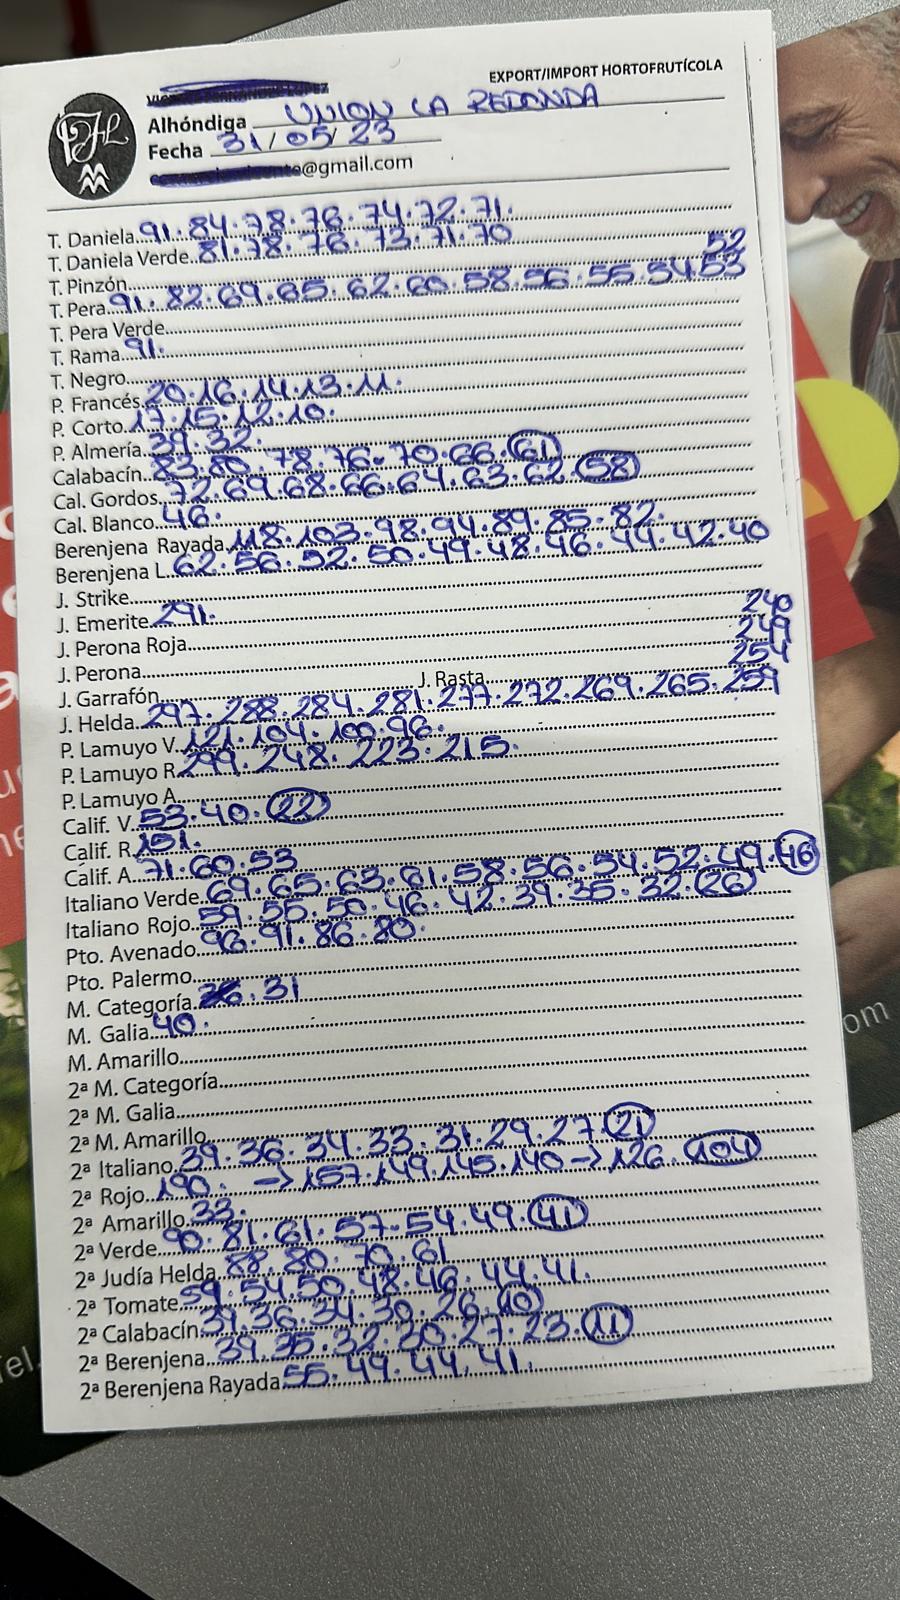 EXPORT/IMPORT HORTOFRUTÍCOLA
Alhóndiga UNION LA REDONDA
Fecha 31/05/23
@gmail.com
T. Daniela 91.84.78.76.74.72.71.
T. Daniela Verde 81.78.76.73.71.70
52
T. Pinzón
T. Pera 91.82.69.65.62.60.58.56.55.54.53
T. Pera Verde
T. Rama 91.
T. Negro
P. Francés 20.16.14.13.11.
P. Corto 17.15.12.10.
P. Almería 39.32.
Calabacín 83.80.78.76.70.66.61
Cal. Gordos 72.69.68.66.64.63.62.58
Cal. Blanco 46.
Berenjena Rayada 118.103.98.94.89.85.82.
Berenjena L. 62.56.52.50.49.48.46.44.42.40
J. Strike
J. Emerite 291.
240
J. Perona Roja
249
J. Perona
254
J. Garrafón J. Rasta
J. Helda 297.288.284.281.277.272.269.265.259
P. Lamuyo V. 121.104.100.96.
P. Lamuyo R. 299.248.223.215.
P. Lamuyo A.
Calif. V. 53.40.22
Calif. R. 151.
Calif. A. 71.60.53
Italiano Verde 69.65.63.61.58.56.54.52.49.46
Italiano Rojo 59.55.50.46.42.39.35.32.26
Pto. Avenado 96.91.86.80.
Pto. Palermo
M. Categoría 31
M. Galia 40.
M. Amarillo
2ª M. Categoría
2ª M. Galia
2ª M. Amarillo
2ª Italiano 39.36.34.33.31.29.27.21
2ª Rojo 190. → 157.149.145.140 → 126.104
2ª Amarillo 33.
2ª Verde 90.81.61.57.54.49.41
2ª Judía Helda 88.80.70.61
2ª Tomate 59.54.50.48.46.44.41.
2ª Calabacín 39.36.34.30.26.10
2ª Berenjena 39.35.32.30.27.23.11
2ª Berenjena Rayada 55.49.44.41.
om